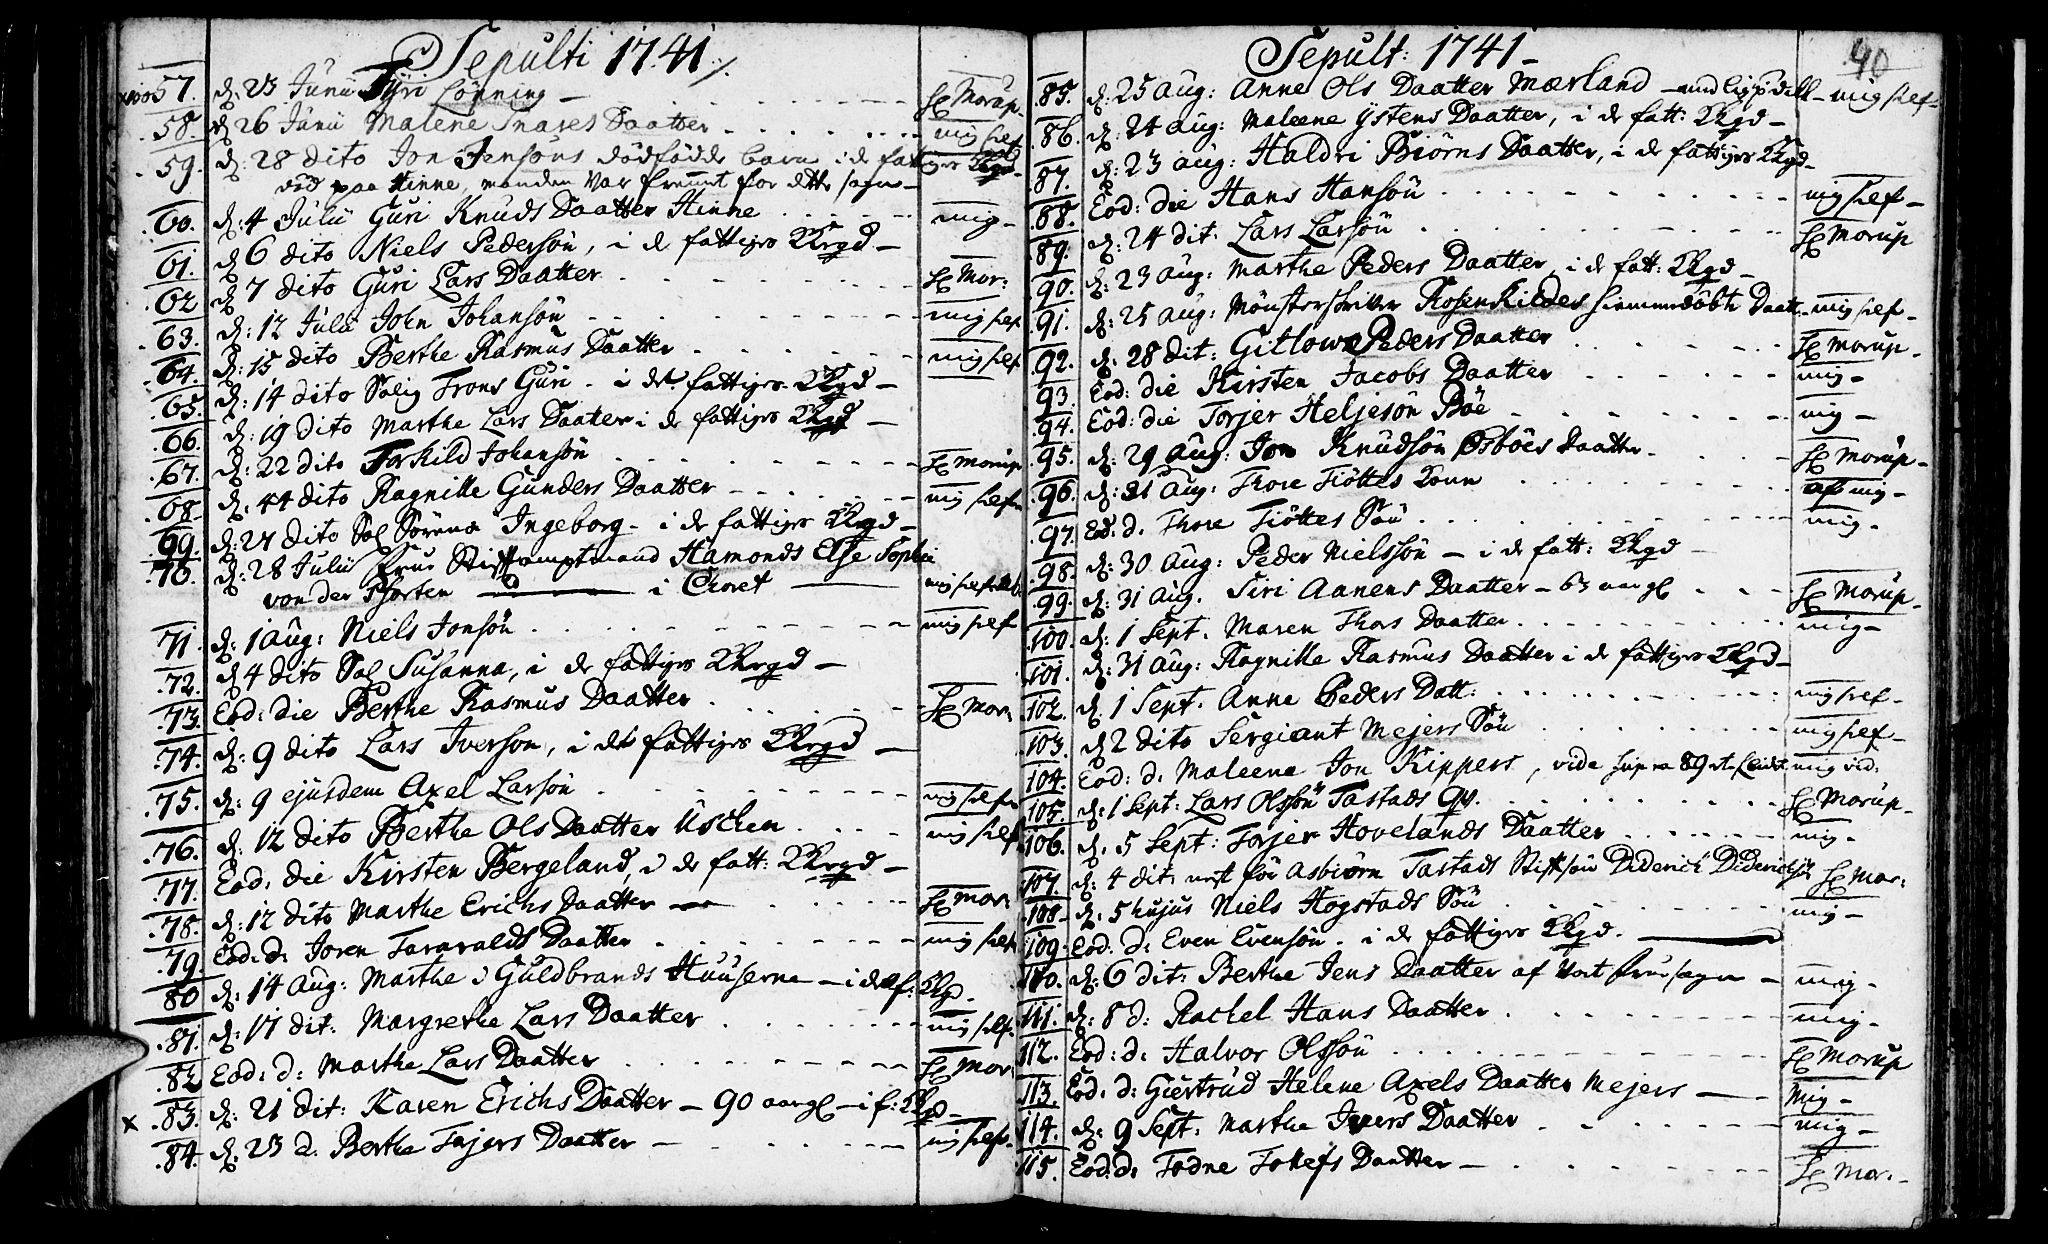 Sepulti 1741
57. d: 23 Junii Tyri Lönning - Hr Morup.
58. d 26 Junii Malene Snares Daatter - mig self
59. d: 28 dito Jon Jensöns dödfödde barn i de fattiges KKrgd
död paa Hinne, manden var fremmt for dette sogn
60. d: 4 Julii Guri Knuds Daatter Hinne - mig -
61. d 6 dito Niels Pedersön, i de fattiges KKrgd -
62 d 7 dito Guri Lars Daatter - Hr Mor:
63. d: 12 Julii John Johansön - mig self
64. d: 15 dito Berthe Rasmus Daatter - mig self
65. d: 14 dito Salig Trons Guri - i de fattiges KKrgd -
66. d: 19 dito Marthe Lars Daatter i de fattiges KKrgd -
67. d: 22 dito Torkild Johansön - Hr Morup
68 d: 44 dito Ragnille Gunders Daatter - mig self
69. d: 27 dito Sal Ingeborg - i de fattiges KKrgd -
70. d: 28 Julii Frue Stiftamptmand Hamonds Else Sophie
von der Pforten i Choret - mig self
71. d: 1 Aug: Niels Jonsön - mig self
72. d 4 dito Sal Susanna, i de fattiges KKrgd -
73. Eod: die Berthe Rasmus Daatter - Hr Mor:
74. d: 9 dito Lars Iverson, i de fattiges KKrgd -
75. d: 9 ejusdem Axel Larsön - mig self
76. d: 12 dito Berthe Ols Daatter Uschen - mig self
77. Eod: die Kirsten Bergeland, i de fatt: KKrgd -
78. d: 12 dito Marthe Erichs Daatter - Hr Mor:
79 Eod: d: Joren Taravalds Daatter - mig self
80 d: 14 Aug: Marthe Guldbrands Huuserne - i de f: KKg -
81. d: 17 dit: Margrethe Lars Daatter - mig self.
82 Eod: d: Marthe Lars Daatter - Hr Mor:
x 83. d: 21 dit: Karen Erichs Daatter - 90 aar gl - i f: KKg -
84. d: 23 d. Berthe Tajers Daatter - mig self.
Sepult: 1741 -
40
85. d: 25 Aug: Anne Ols Daatter Mærland - mig self -
86. d: 24 Aug: Maleene Ystens Daatter, i de fatt: KKgd -
87. d: 23 Aug: Haldri Biörns Daatter, i de fattiges KKgd -
88. Eod: die Hans Hansön - mig self -
89. d: 24 dit: Lars Larsön - Hr Morup
90. d: 23 Aug: Marthe Peders Daatter i de fatt: KKgd -
91. d: 25 Aug: Mönsterskriver Rosenkildes hiemmedöbte Daatt - mig self -
92. d: 28 dit: Peders Daatter - Hr Morup -
93. Eod: die Kirsten Jacobs Daatter - mig -
94. Eod: die Torjer Heljesön Böe - mig -
95. d: 29 Aug: Jon Knudsön Osböes Daatter - Hr Morup -
96. d: 31 Aug: Thore Tiöttes Konn - af mig -
97. Eod: d. Thore Tiöttes Sön - mig -
98. d: 30 Aug: Peder Nielssön - i de fatt: KKgd -
99. d: 31 Aug. Siri Aanens Daatter - 63 aar gl - Hr Morup -
100. d: 1 Sept. Maren Thors Daatter - mig -
101. d: 31 Aug: Ragnille Rasmus Daatter i de fattiges KKgd -
102. d 1 Sept. Anne Peders Datt: - mig self -
103. d 2 dito Sergiant Mejers Sön - mig self -
104. Eod: d. Maleene Jon Kippers, vide supra 89 - mig
105. d: 1 Sept: Lars Olssön Tastads - Hr Morup -
106. d. 5 Sept: Torjer Hovelands Daatter - mig -
107. d: 4 dit: Asbiörn Tastads Diderich Diderichsön - Hr Mor:
108 d. 5 hujus Niels Hogstads Sön - mig -
109 Eod. d: Even Evensön - i de fattiges KKgd.
110. d: 6 dit: Berthe Jens Daatter af Vort frue sogn - mig -
111. d: 8 d: Rachel Hans Daatter - mig -
112. Eod: d. Halvor Olssön - Hr Morup
113. Eod. d: Giertrud Helene Axels Daatter Mejers - Mig -
114. d: 9 Sept: Marthe Ivers Daatter - mig -
115. Eod: d: Todne Tollefs Daatter - Hr Mor: -